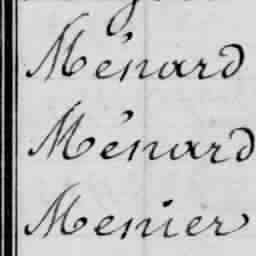 Ménard
Ménard
Menier